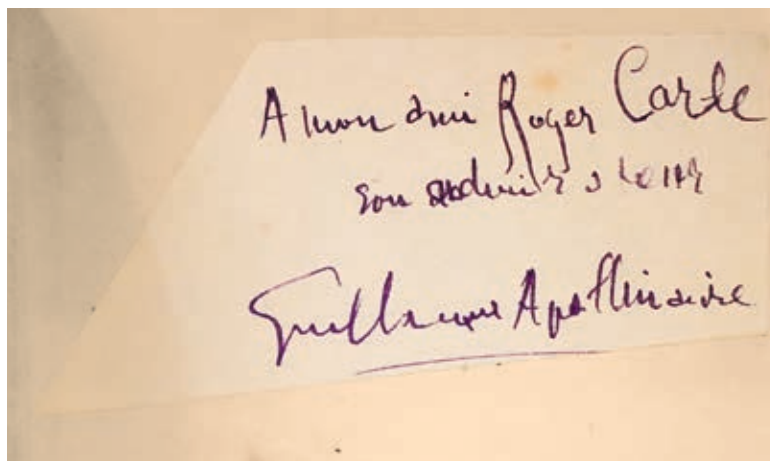 A mon ami Roger Carle
son
Guillaume Apollinaire